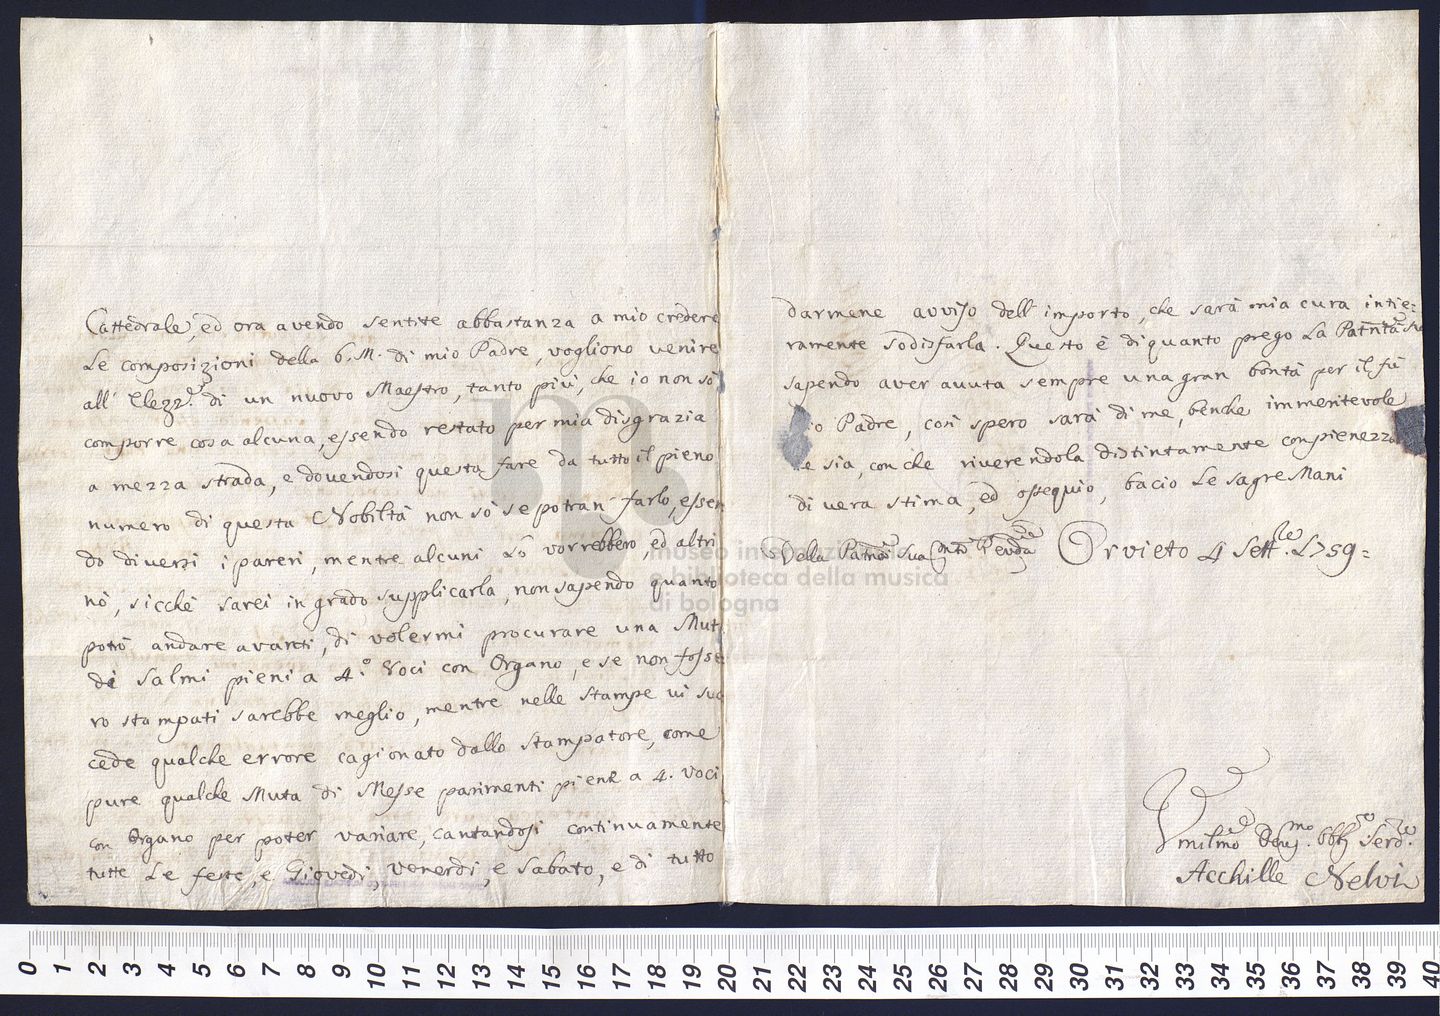 Cattedrale, ed ora avendo sentite abbastanza a mio credere
le composizioni della b. M. di mio Padre, vogliono venire
all' Elezz.e di un nuovo Maestro, tanto più, che io non sò
comporre cosa alcuna, essendo restato per mia disgrazia
a mezza strada, e dovendosi questa fare da tutto il pieno
numero di questa Nobiltà non sò se potran farlo, essen
do diversi i pareri, mentre alcuni Lò vorrebbero, ed altri
nò, sicchè sarei in grado supplicarla, non sapendo quanto
potrò andare avanti, di volermi procurare una Muta
di Salmi pieni a 4.º Voci con Organo, e se non fosse
ro stampati sarebbe meglio, mentre nelle stampe vi suc
cede qualche errore cagionato dallo Stampatore, come
pure qualche Muta di Messe parimenti piene a 4. Voci
con Organo per poter variare, cantandosi continuamente
tutte le feste, e Giovedì, Venerdì, e Sabato, e di tutto
darmene avviso dell' importo, che sarà mia cura intie=
ramente sodisfarla. Questo è di quanto prego La Patntà Sua
sapendo aver avuta sempre una gran bontà per il fù
io Padre, così spero sarà di me, benche immeritevole
e sia, con che riverendola distintamente con pienezza
di vera stima, ed ossequio, bacio le sagre Mani
Della Patntà Sua Mto Revda Orvieto 4 Sett.le 1759=
Umilmo Devs.mo Obbl.o Serd.re
Acchille Nelvi
museo internazionale
e biblioteca della musica
di bologna
0 1 2 3 4 5 6 7 8 9 10 11 12 13 14 15 16 17 18 19 20 21 22 23 24 25 26 27 28 29 30 31 32 33 34 35 36 37 38 39 40